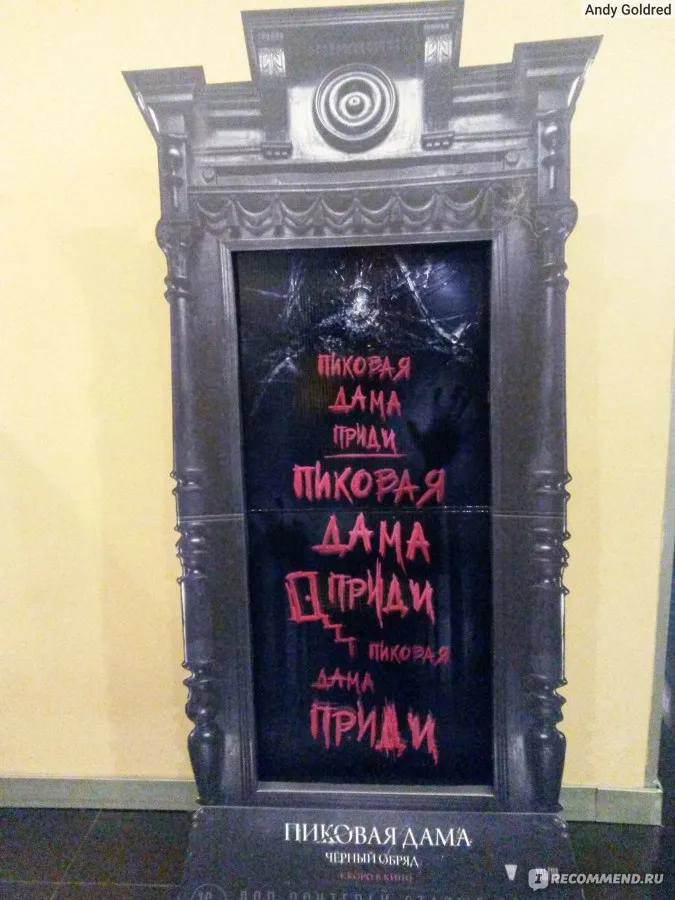 Andy Goldred
ПИКОВАЯ
ДАМА
ПРИДИ
ПИКОВАЯ
ДАМА
ПРИДИ
ПИКОВАЯ
ДАМА
ПРИДИ
ПИКОВАЯ ДАМА
ЧЕРНЫЙ ОБРЯД
СКОРО В КИНО
IRECOMMEND.RU